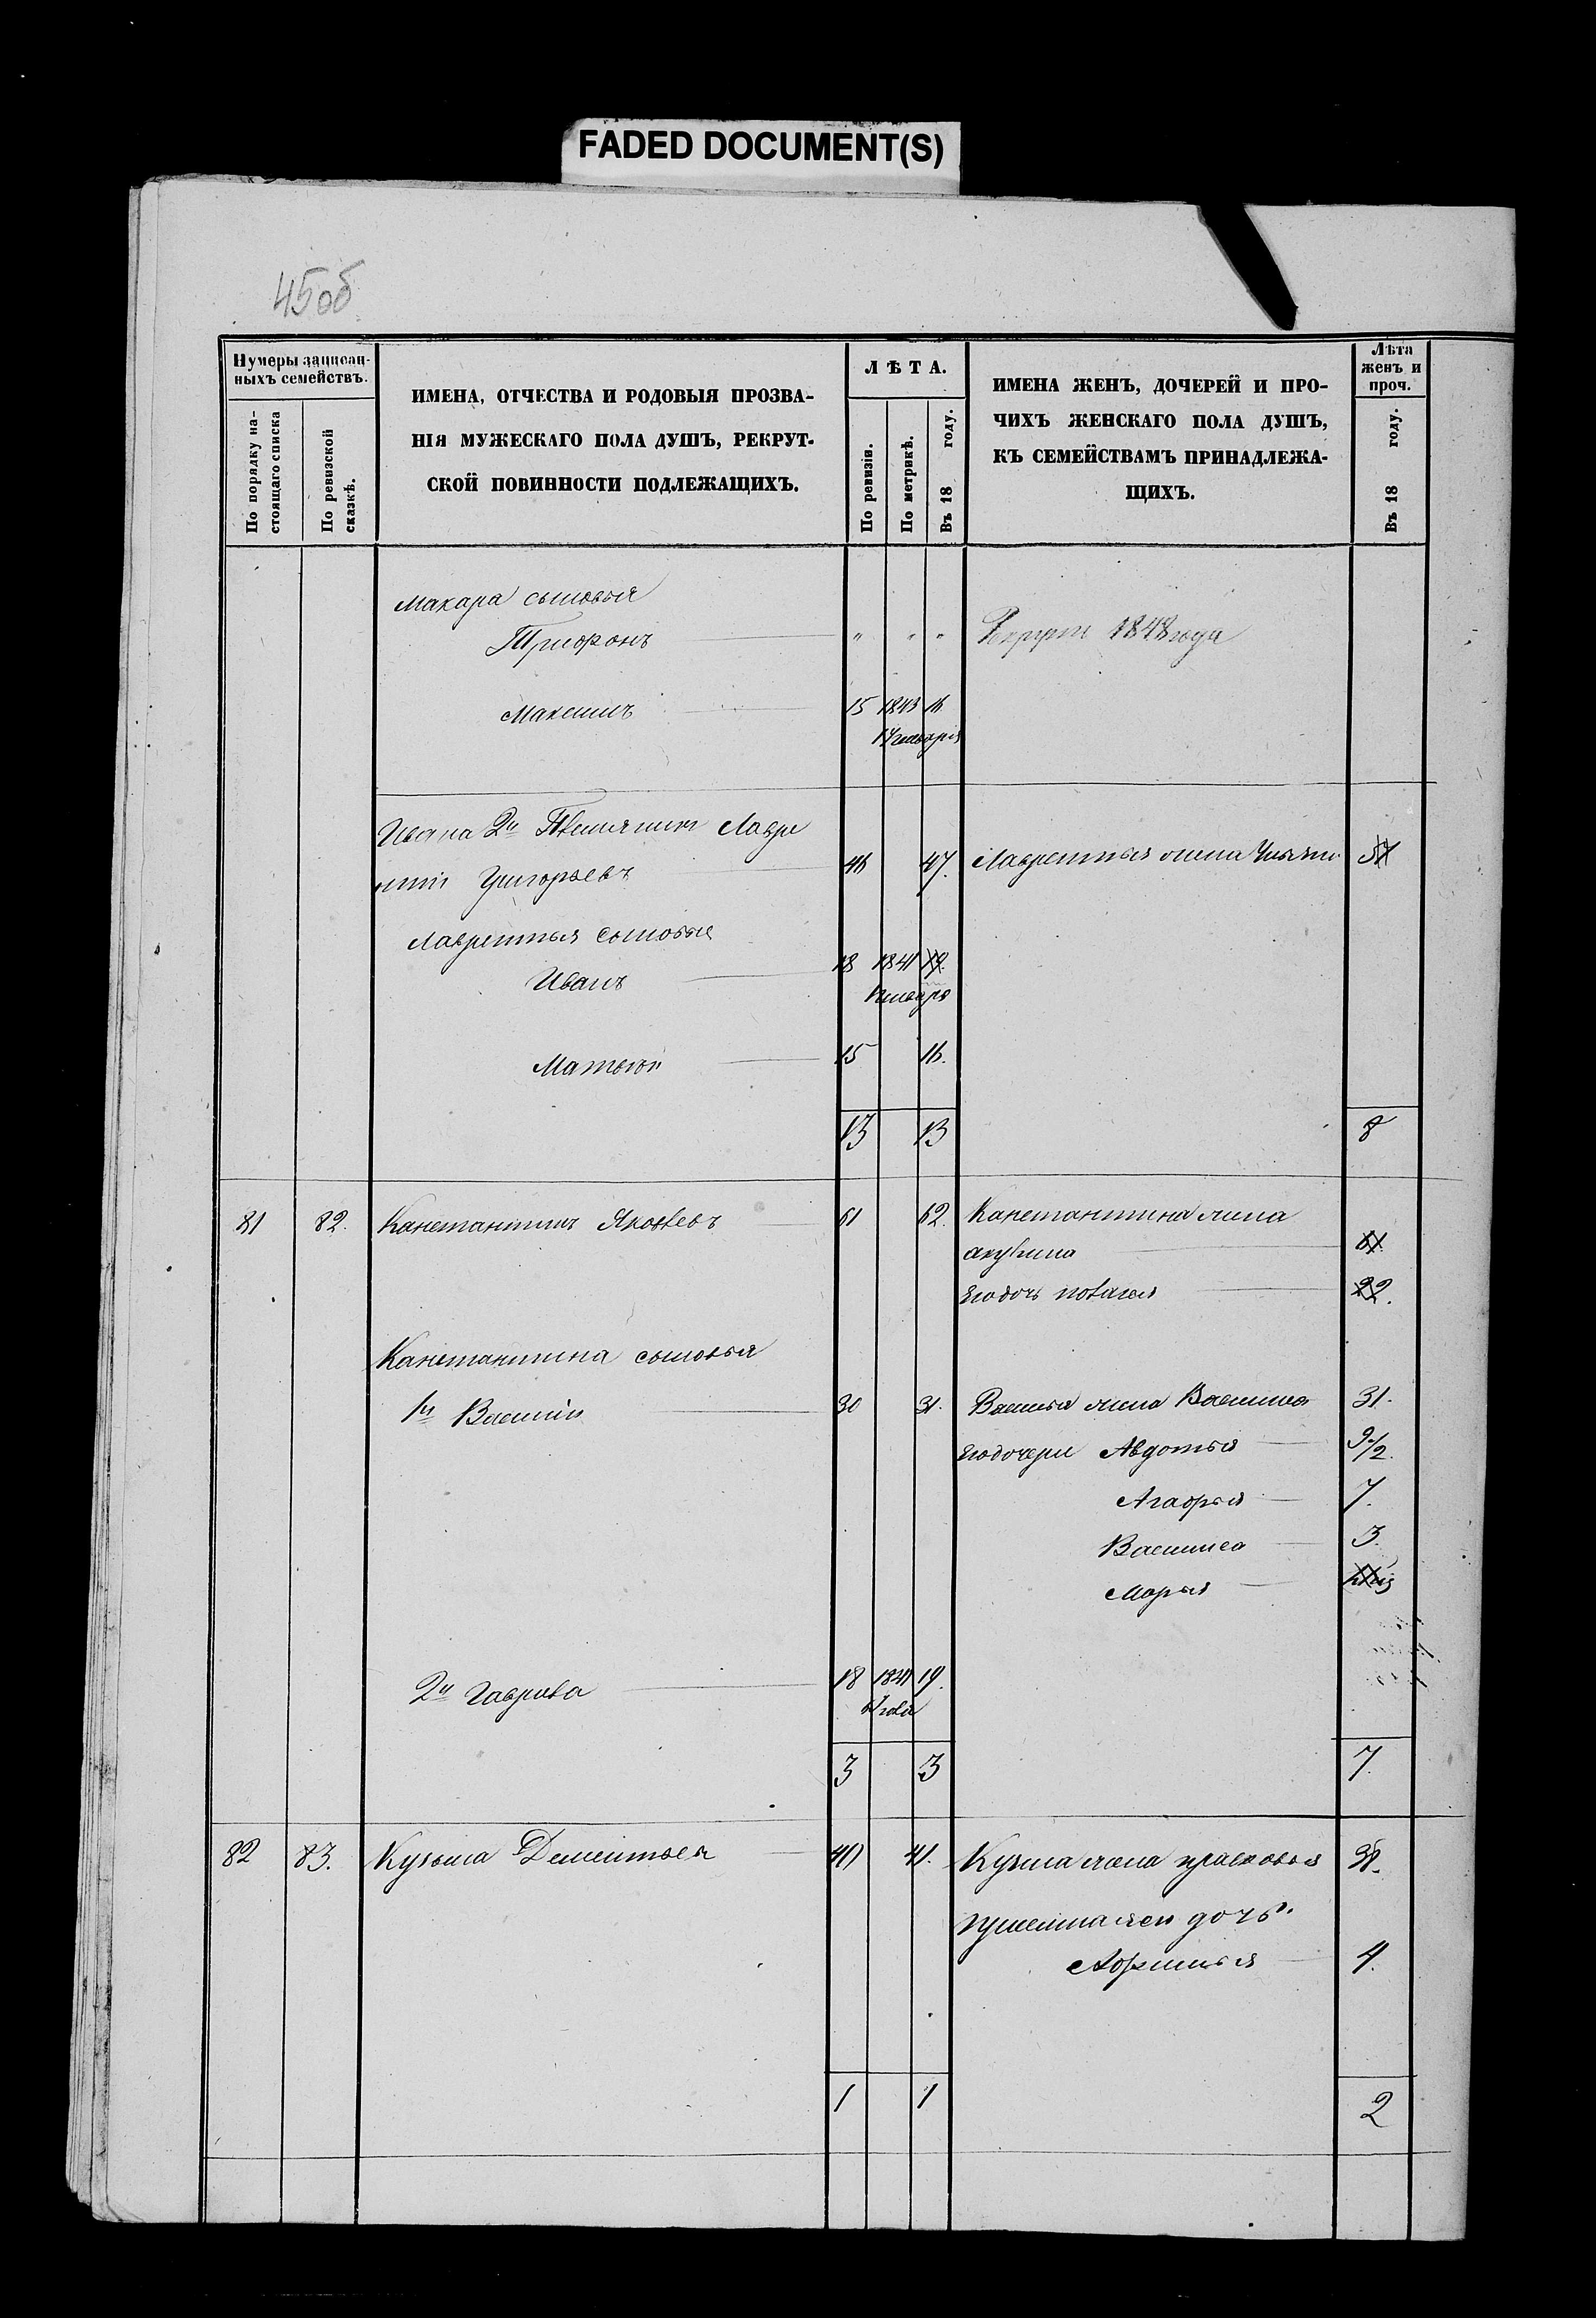 FADED DOCUMENT(S)
45об
Нумеры записан-
ныхъ семействъ.
По порядку на-
стоящаго списка
По ревизской
сказкѣ.
ИМЕНА, ОТЧЕСТВА И РОДОВЫЯ ПРОЗВА-
НІЯ МУЖЕСКАГО ПОЛА ДУШЪ, РЕКРУТ-
СКОЙ ПОВИННОСТИ ПОДЛЕЖАЩИХЪ.
ЛѢТА.
По ревизіи.
По метрикѣ.
Въ 18 году.
ИМЕНА ЖЕНЪ, ДОЧЕРЕЙ И ПРО-
ЧИХЪ ЖЕНСКАГО ПОЛА ДУШЪ,
КЪ СЕМЕЙСТВАМЪ ПРИНАДЛЕЖА-
ЩИХЪ.
Лѣта
женъ и
проч.
Въ 18 году.
Макара сыновья
Трифонъ " " " Рекрутъ 1848 года
Максимъ 15 1843 16
Генваря
Ивана 2й Племянник Лавре
нтій Григорьевъ 46 47. Лаврентья жена 51
Лаврентья сыновья
Иванъ 18 1841 19.
Генваря
Матвѣй 15 16.
13 13 8
81 82. Канстантинъ Яковлевъ 61 62. Канстантина жена
акулина 61
его дочь пелагея 22.
Канстантина сыновья
1й Василій 30 31. Василья жена Василиса 31.
его дочери Авдотья 9 1/2.
Агафья 7.
Василиса 3.
Марья
2й Гаврила 18 1841 19.
3 3 7.
82 83. Кузьма Дементьев 40 41. Кузма жена прасковья 38.
дочь.
Афимья 4.
1 1 2